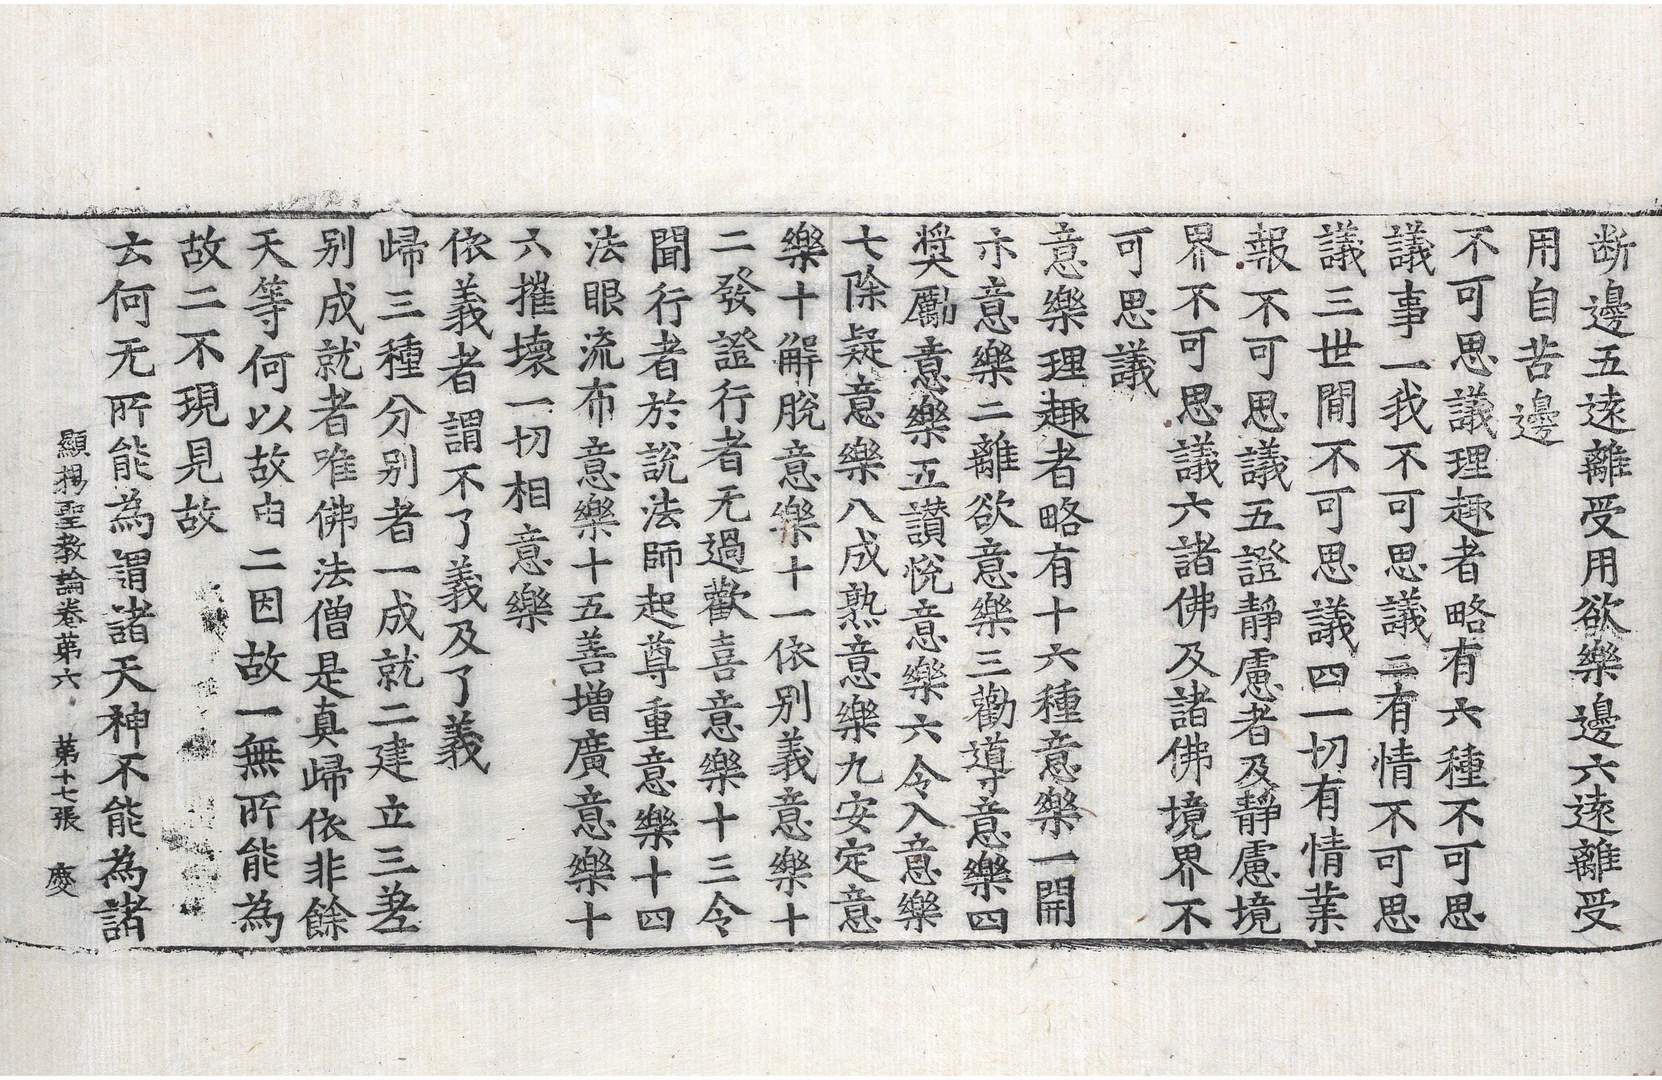 断邊五遠離受用欲樂邊六遠離受
用自苦邊
不可思議理趣者略有六種不可思
議事一我不可思議二有情不可思
議三世間不可思議四一切有情業
報不可思議五證靜慮者及靜慮境
界不可思議六諸佛及諸佛境界不
可思議
意樂理趣者略有十六種意樂一開
示意樂二離欲意樂三勸導意樂四
奬勵意樂五讃悅意樂六令入意樂
七除疑意樂八成熟意樂九安定意
樂十解脫意樂十一依別義意樂十
二發證行者无過歡喜意樂十三令
聞行者於說法師起尊重意樂十四
法眼流布意樂十五善增廣意樂十
六摧壞一切相意樂
依義者謂不了義及了義
歸三種分别者一成就二建立三差
别成就者唯佛法僧是真歸依非餘
天等何以故由二因故一無所能為
故二不現見故
云何无所能為謂諸天神不能為諸
顯揚聖教論卷苐六 苐十七張 慶